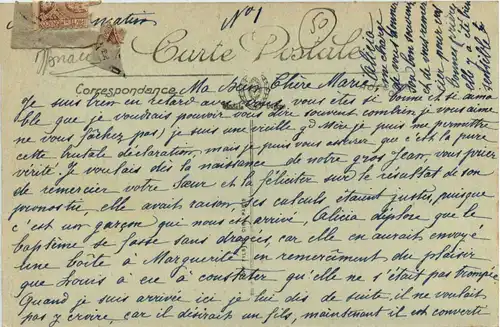 No 1
50
Carte Postale
Correspondance
Ma Bien Chère Marie
Je suis bien en retard avec vous, vous êtes si bonne et si aima
ble que je voudrais pouvoir vous dire souvent combien je vous aime
ne vous fâchez pas) je suis une vieille gd Mère je puis me permettre
cette brutale déclaration, mais je puis vous assurer que c'est la pure
vérité je voulais dès la naissance de notre gros Jean, vous prier
de remercier votre Sœur et la féliciter sur le résultat de son
pronostic, elle avait raison, ses calculs étaient justes, puisque
c'est un garçon qui nous est arrivé, Alicia déplore que le
baptême se fasse sans dragées, car elle en aurait envoyé
une boîte à Marguerite en remerciement du plaisir
que Louis a eu à constater qu'elle ne s'était pas trompée
Quand je suis arrivée ici je lui dis de suite, il ne voulait
pas y croire, car il désirait un fils, maintenant il est converti
Alicia
me charge
de vous
son bon souvenir
et de vous remer
cier pour